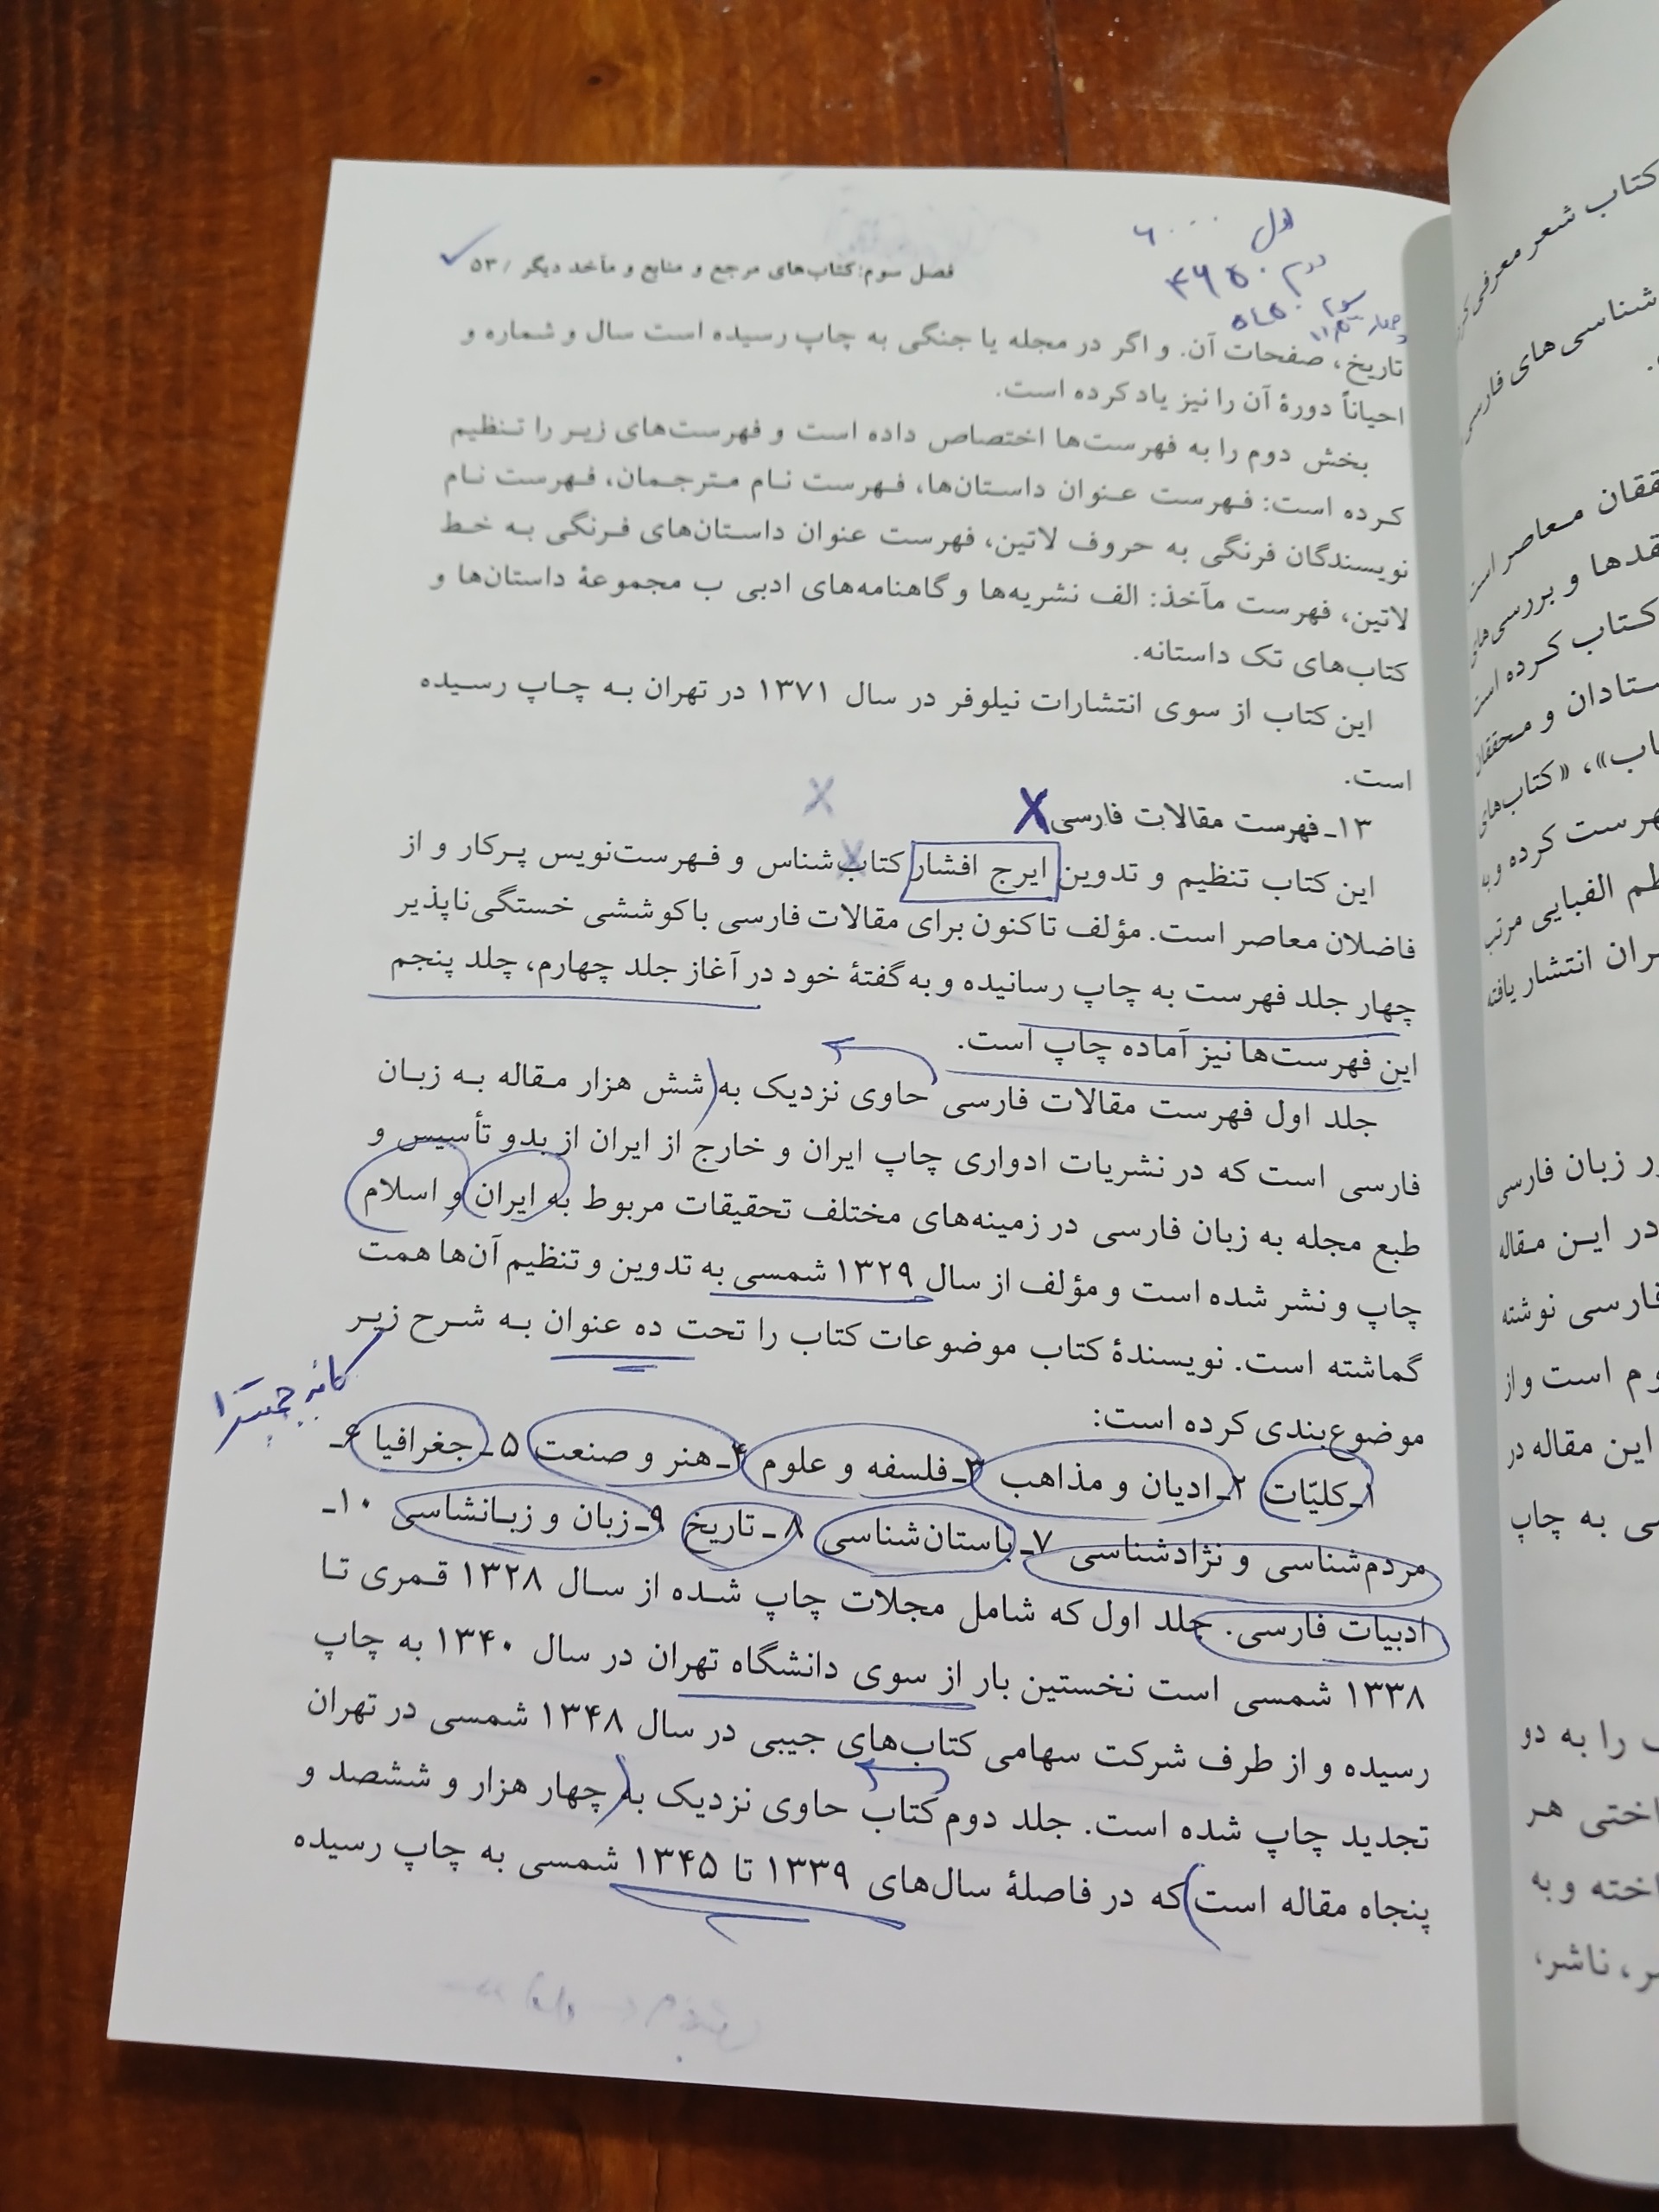 اول ۶۰۰۰
دوم ۴۶۵۰
سوم
چهار
فصل سوم: کتاب‌های مرجع و منابع و مآخد دیگر / ۵۳
تاریخ، صفحات آن. و اگر در مجله یا جنگی به چاپ رسیده است سال و شماره و
احیاناً دورهٔ آن را نیز یاد کرده است.
بخش دوم را به فهرست‌ها اختصاص داده است و فهرست‌های زیر را تنظیم
کرده است: فهرست عنوان داستان‌ها، فهرست نام مترجمان، فهرست نام
نویسندگان فرنگی به حروف لاتین، فهرست عنوان داستان‌های فرنگی به خط
لاتین، فهرست مآخذ: الف نشریه‌ها و گاهنامه‌های ادبی ب مجموعهٔ داستان‌ها و
کتاب‌های تک داستانه.
این کتاب از سوی انتشارات نیلوفر در سال ۱۳۷۱ در تهران به چاپ رسیده
است.
۱۳ـ فهرست مقالات فارسی
این کتاب تنظیم و تدوین ایرج افشار کتاب‌شناس و فهرست‌نویس پرکار و از
فاضلان معاصر است. مؤلف تاکنون برای مقالات فارسی با کوششی خستگی‌ناپذیر
چهار جلد فهرست به چاپ رسانیده و به گفتهٔ خود در آغاز جلد چهارم، چلد پنجم
این فهرست‌ها نیز آماده چاپ است.
جلد اول فهرست مقالات فارسی حاوی نزدیک به شش هزار مقاله به زبان
فارسی است که در نشریات ادواری چاپ ایران و خارج از ایران از بدو تأسیس و
طبع مجله به زبان فارسی در زمینه‌های مختلف تحقیقات مربوط به ایران و اسلام
چاپ و نشر شده است و مؤلف از سال ۱۳۲۹ شمسی به تدوین و تنظیم آن‌ها همت
گماشته است. نویسندهٔ کتاب موضوعات کتاب را تحت ده عنوان به شرح زیر
موضوع‌بندی کرده است:
۱ـ کلیّات ۲ـ ادیان و مذاهب ۳ـ فلسفه و علوم ۴ـ هنر و صنعت ۵ـ جغرافیا ۶ـ
مردم‌شناسی و نژادشناسی ۷ـ باستان‌شناسی ۸ـ تاریخ ۹ـ زبان و زبانشاسی ۱۰ـ
ادبیات فارسی. جلد اول که شامل مجلات چاپ شده از سال ۱۳۲۸ قمری تا
۱۳۳۸ شمسی است نخستین بار از سوی دانشگاه تهران در سال ۱۳۴۰ به چاپ
رسیده و از طرف شرکت سهامی کتاب‌های جیبی در سال ۱۳۴۸ شمسی در تهران
تجدید چاپ شده است. جلد دوم کتاب حاوی نزدیک به چهار هزار و ششصد و
پنجاه مقاله است که در فاصلهٔ سال‌های ۱۳۳۹ تا ۱۳۴۵ شمسی به چاپ رسیده
کتاب شعر معرفی
شناسی‌های فارسی
معاصر است
نقدها و بررسی‌های
کتاب کرده است
ستادان و محققان
«کتاب‌های
فهرست کرده و به
الفبایی مرتب
انتشار یافته
زبان فارسی
در این مقاله
فارسی نوشته
است و از
این مقاله در
به چاپ
را به دو
هر
و به
ناشر،